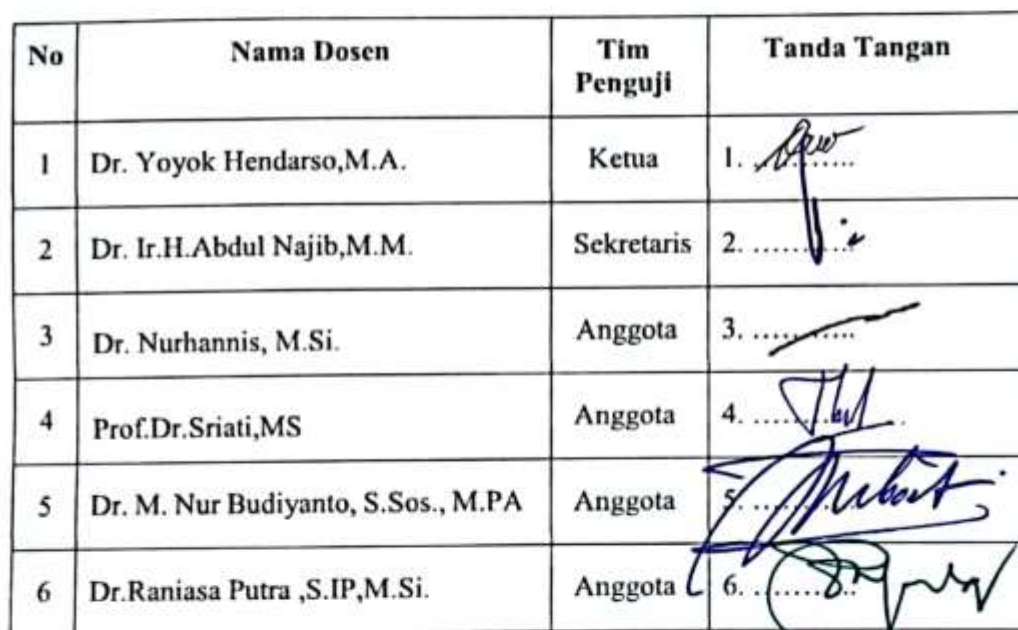 No Nama Dosen Tim Penguji Tanda Tangan
1 Dr. Yoyok Hendarso,M.A. Ketua 1. ............
2 Dr. Ir.H.Abdul Najib,M.M. Sekretaris 2. ............
3 Dr. Nurhannis, M.Si. Anggota 3. ............
4 Prof.Dr.Sriati,MS Anggota 4. ..................
5 Dr. M. Nur Budiyanto, S.Sos., M.PA Anggota 5. ............
6 Dr.Raniasa Putra ,S.IP,M.Si. Anggota 6. ............